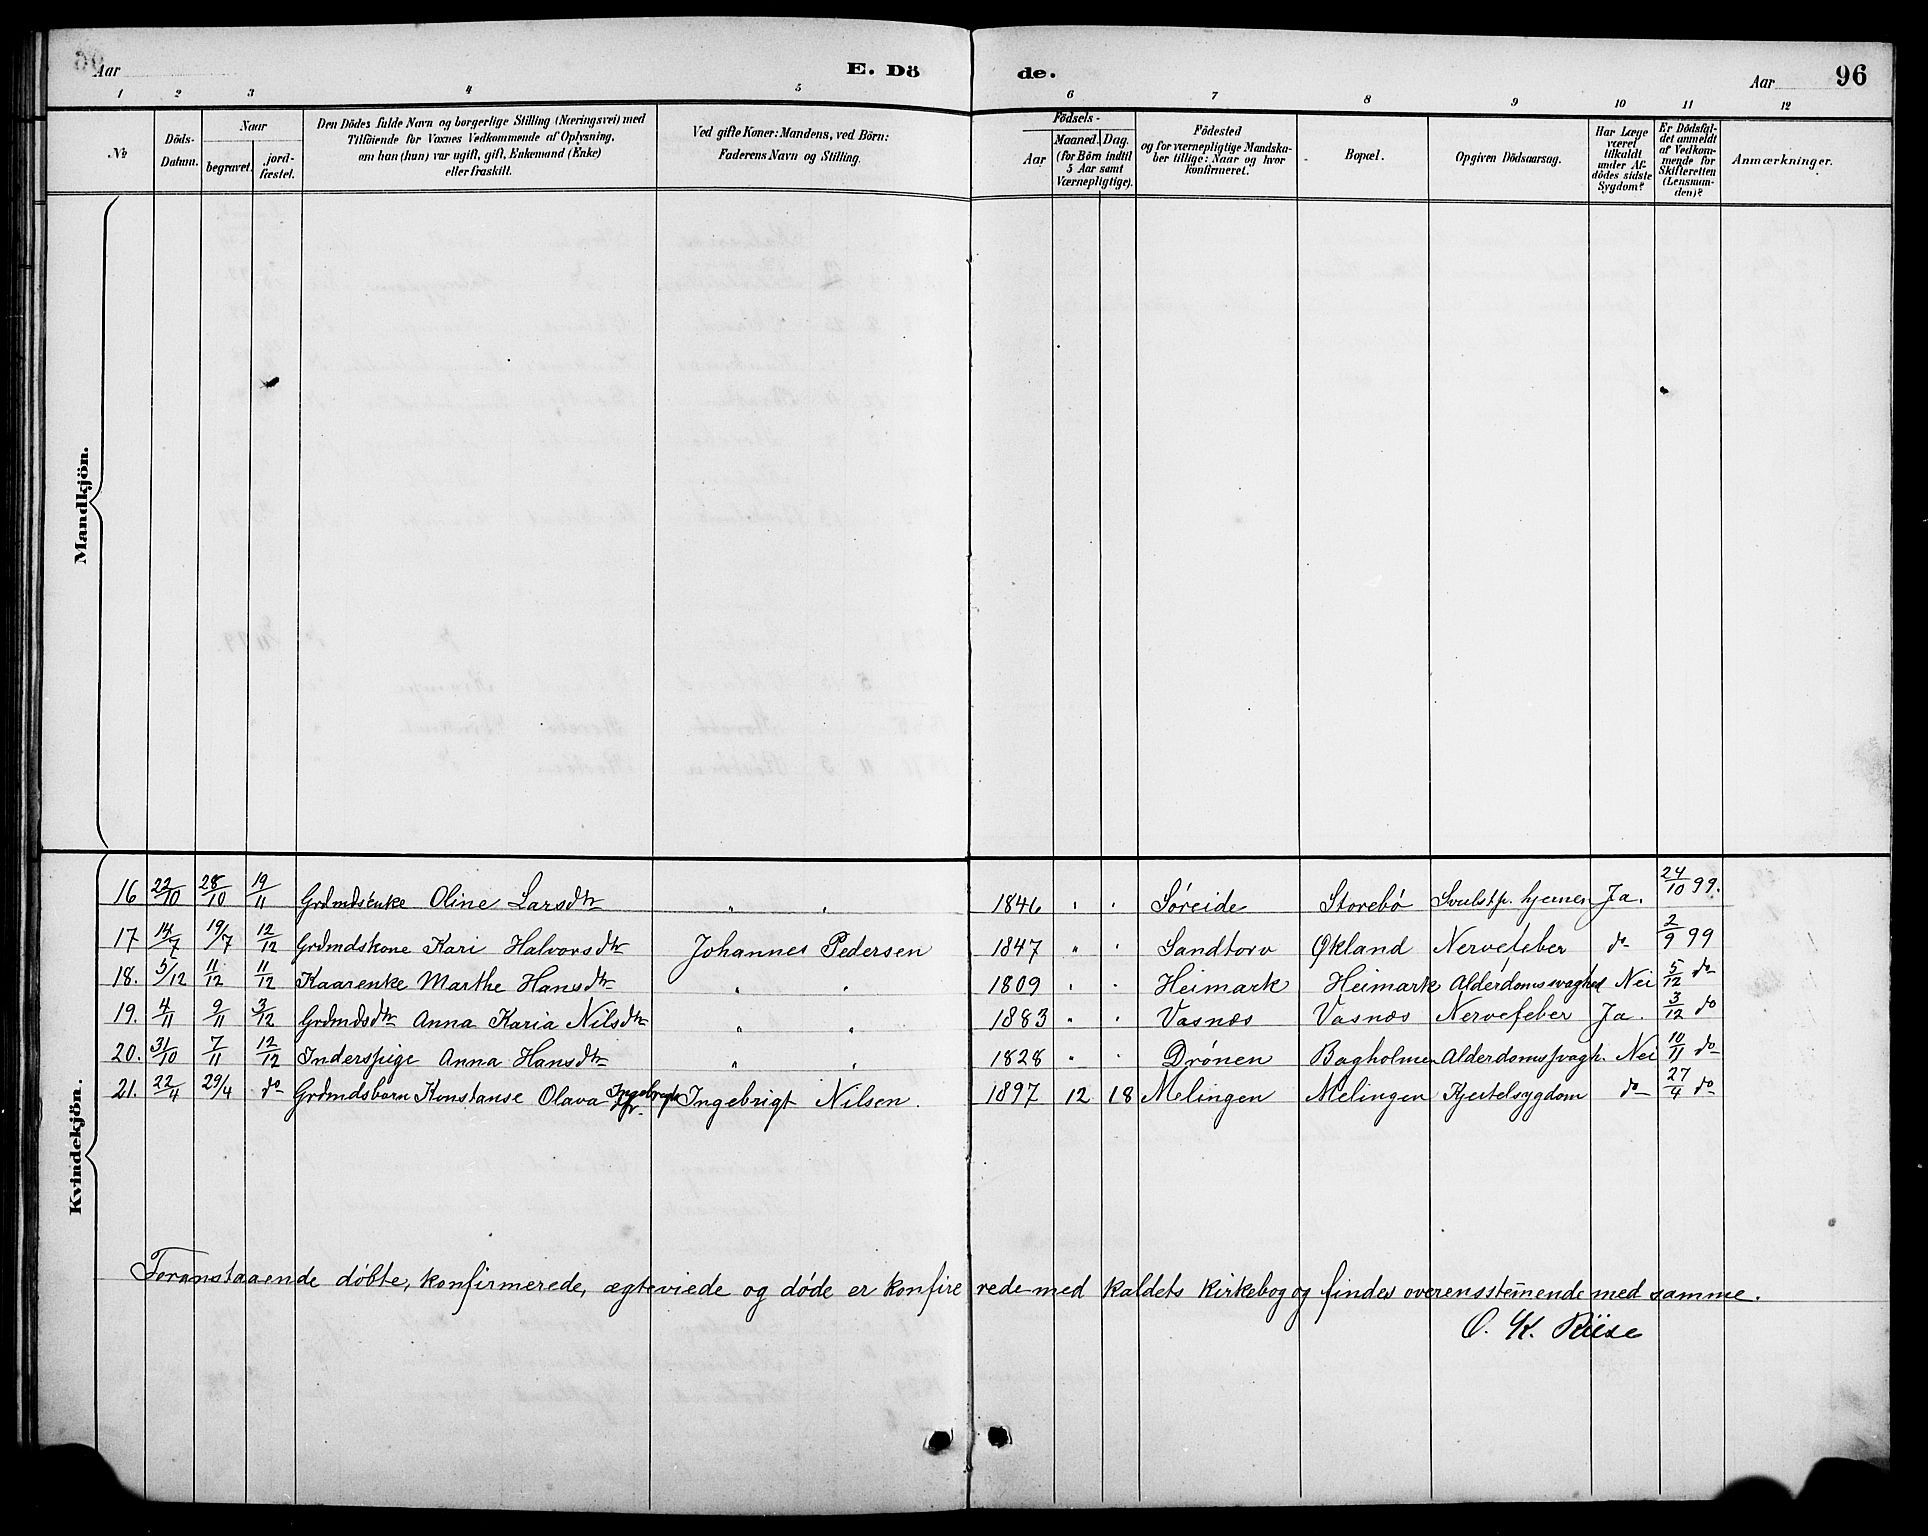 Aar E. Dö de. Aar 96
1 2 3 4 5 6 7 8 9 10 11 12
№ Döds-Datum. Naar begravet. jordfæstet. Den Dödes fulde Navn og borgerlige Stilling (Næringsvei) med Tilföiende for Voxnes Vedkommende af Oplysning, om han (hun) var ugift, gift, Enkemand (Enke) eller fraskilt. Ved gifte Koner: Mandens, ved Börn: Faderens Navn og Stilling. Födsels- Aar Maaned. Dag. (for Börn indtil 5 Aar samt Værnepligtige). Födested og for værnepligtige Mandskaber tillige: Naar og hvor konfirmeret. Bopæl. Opgiven Dödsaarsag. Har Læge været tilkaldt under Afdödes sidste Sygdom? Er Dödsfaldet anmeldt af Vedkommende for Skifteretten (Lensmanden)? Anmærkninger.
Mandkjön.
Kvindekjön.
16 22/10 28/10 19/11 Grdmdsenke Oline Larsdtr " " 1846 " " Søreide Storebø Svulst p. hjernen Ja. 24/10 99.
17 14/7 19/7 12/12 Grdmdskone Kari Halvorsdtr Johannes Pedersen 1847 " " Sandtorv Økland Nervefeber do 2/9 99
18. 5/12 11/12 11/12 Kaarenke Marthe Hansdtr " " 1809 " " Heimark Heimark Alderdomssvaghed Nei 5/12 do
19. 4/11 9/11 3/12 Grdmdsdtr Anna Karia Nilsdtr " " 1883 " " Vasnæs Vasnæs Nervefeber Ja. 3/12 do
20. 31/10 7/11 12/12 Inderspige Anna Hansdtr " " 1828 " " Drønen Bagholmen Alderdomssvagh. Nei 10/11 do
21. 22/4 29/4 do Grdmdsbarn Konstanse Olava Ingebrigtsdtr. Ingebrigt Nilsen. 1897 12 18 Melingen Melingen Kjertelsygdom do 27/4 do
Foranstaaende døbte, konfirmerede, ægteviede og døde er konfirerede med kaldets kirkebog og findes overensstem̅ende med samme.
O. K. Riise